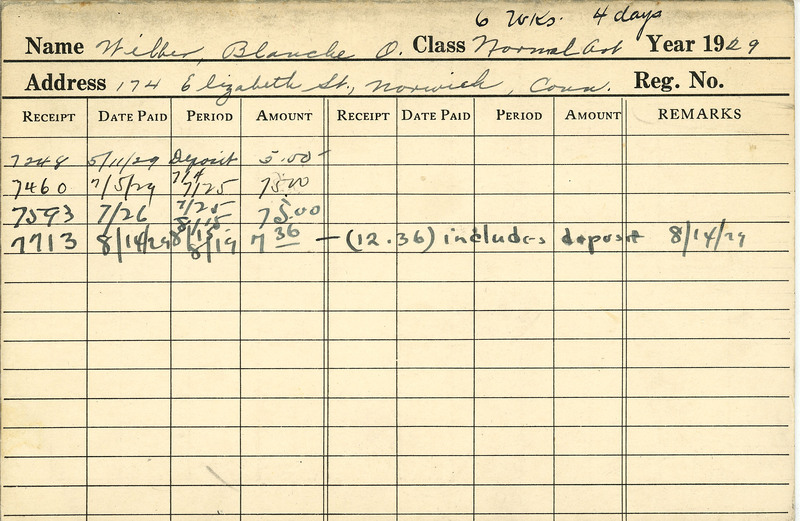 6 Wks. 4 days
Name Wilber, Blanche O. Class Normal Art Year 1929
Address 174 Elizabeth St., Norwich, Conn. Reg. No.
RECEIPT DATE PAID PERIOD AMOUNT RECEIPT DATE PAID PERIOD AMOUNT REMARKS
7248 5/11/29 Deposit 5.00
7460 7/5/29 7/4 7/25 75.00
7593 7/26 7/25 8/15 75.00
7713 8/14/29 8/15 8/19 7 36 — (12.36) includes deposit 8/14/29